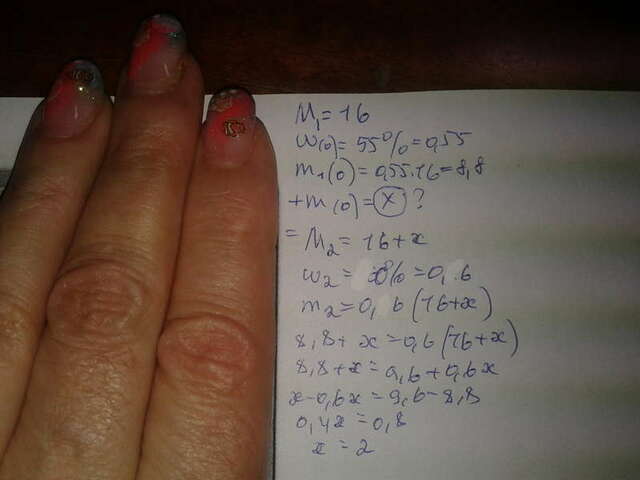 M₁ = 16
ω(o) = 55% = 0,55
m₁(o) = 0,55·16 = 8,8
+m(o) = x ?
= M₂ = 16+x
ω₂ = % = 0,6
m₂ = 0,6(16+x)
8,8 + x = 0,6(16+x)
8,8 + x = 9,6 + 0,6x
x - 0,6x = 9,6 - 8,8
0,4x = 0,8
x = 2